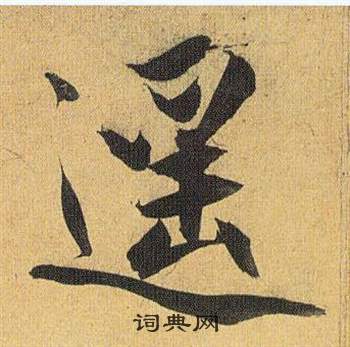 遥
词典网